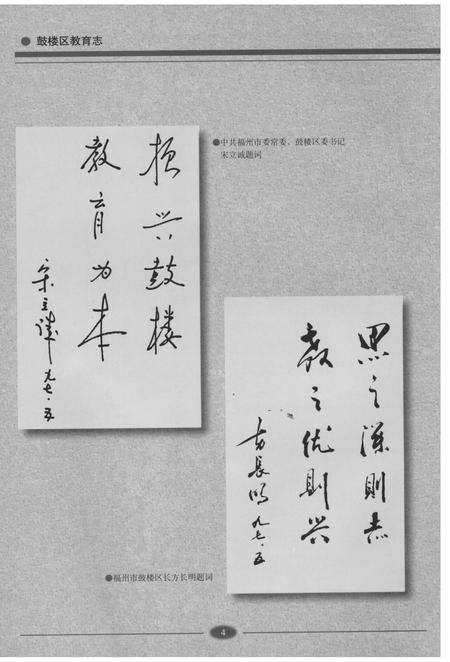 鼓楼区教育志
中共福州市委常委、鼓楼区委书记
宋立诚题词
振兴鼓楼
教育为本
宋立诚 九七·五
思之深则志
教之优则兴
方长明 九七·五
福州市鼓楼区长方长明题词
4